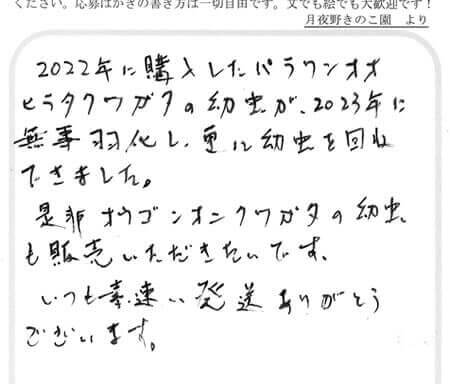 ください。応募はがきの書き方は一切自由です。文でも絵でも大歓迎です！
月夜野きのこ園　より
2022年に購入したパラワンオオ
ヒラタクワガタの幼虫が、2023年に
無事羽化し、更に幼虫を回収
できました。
是非オウゴンオニクワガタの幼虫
も販売いただきたいです。
いつも素速い発送ありがとう
ございます。